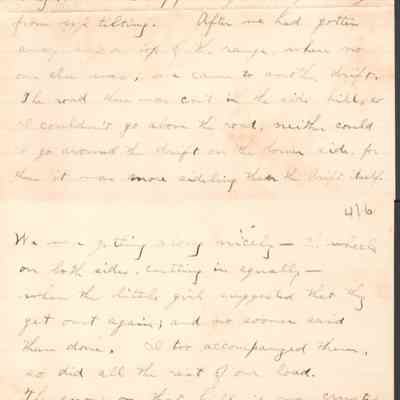 from            tilting.   After we had gotten
            on top of the range, where no
one else was, we came to another drift.
The road there was cut in the side hill, so
I couldn't go above the road, neither could
I go around the drift on the lower side, for
there it was more sideling than the drift itself.
416
We were getting along "nicely" – the wheels
on both sides, cutting in equally –
when the little girls suggested that they
get out again; and no sooner said
than done. I too accompanyed them,
so did all the rest of our load.
The snow on that